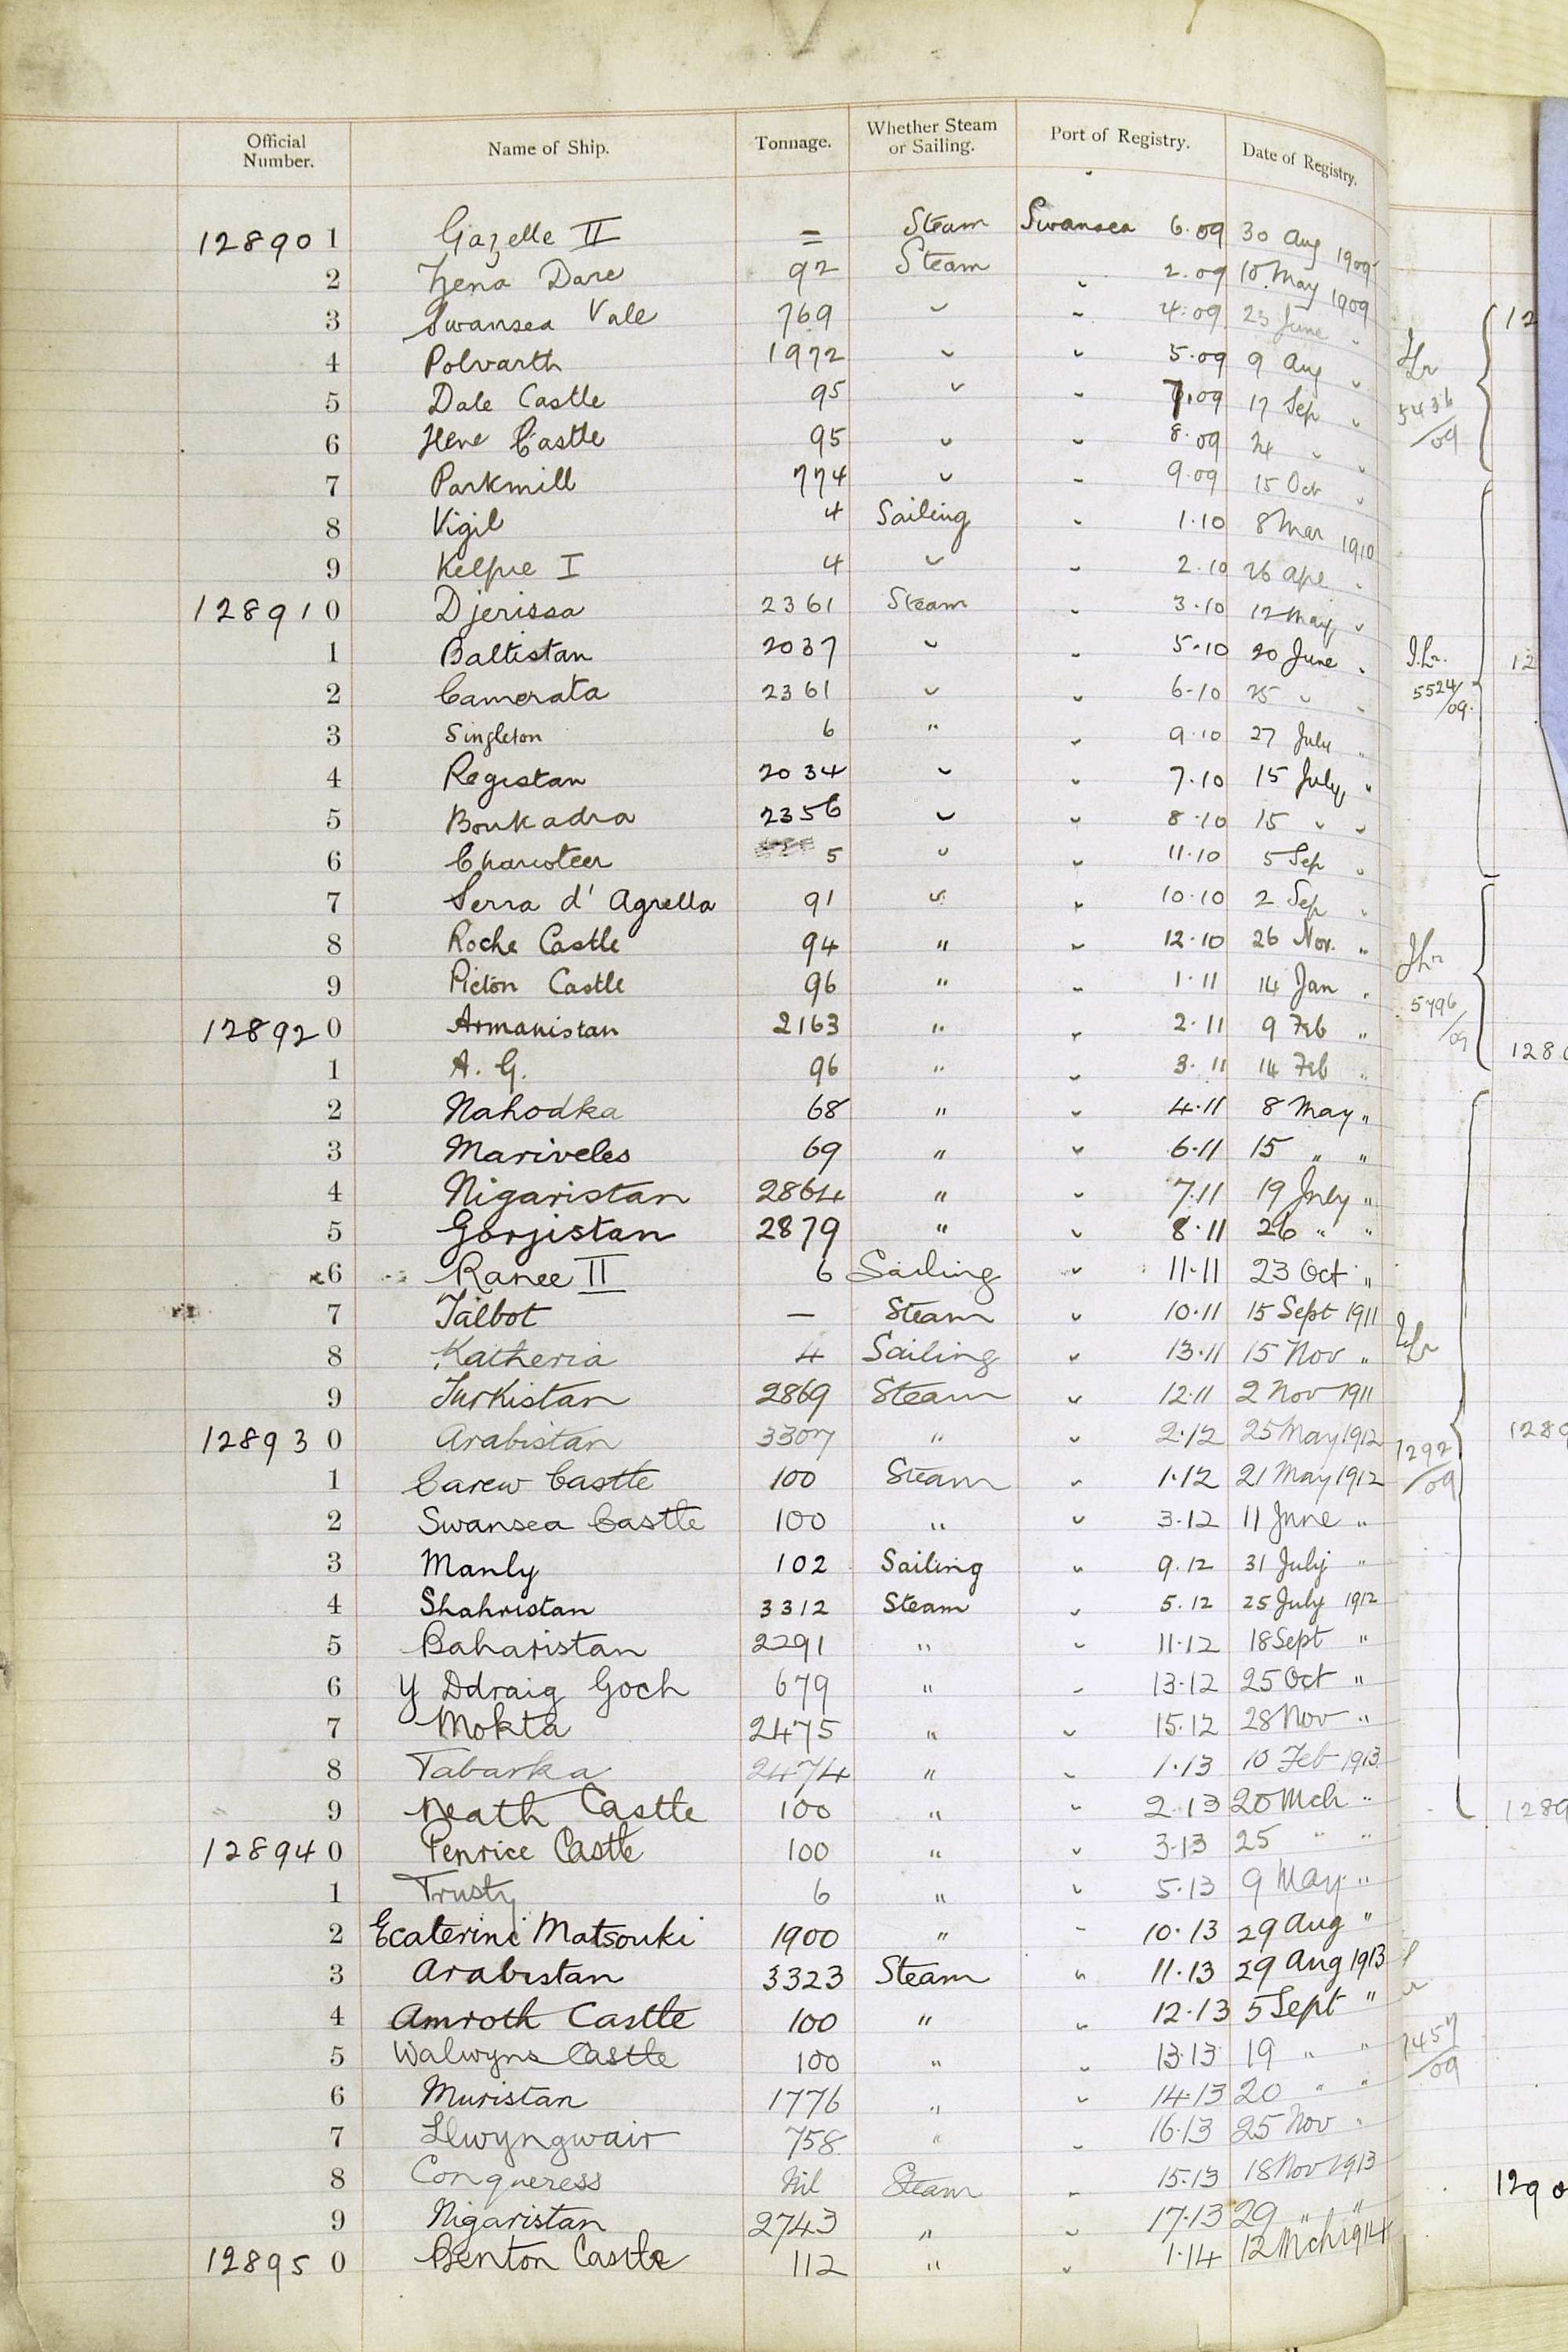 Official Number. Name of Ship. Tonnage. Whether Steam or Sailing. Port of Registry. Date of Registry.
128901 Gazelle II = Steam Swansea 6.09 30 Aug 1909
2 Zena Dare 92 Steam 2.09 10 May 1909
3 Swansea Vale 769 " " 4.09 23 June "
4 Polvarth 1972 " " 5.09 9 Aug "
5 Dale Castle 95 " " 7.09 17 Sep "
6 Hene Castle 95 " " 8.09 24 " "
7 Parkmill 774 " " 9.09 15 Oct "
8 Vigil 4 Sailing " 1.10 8 Mar 1910
9 Kelpie I 4 " " 2.10 26 Apl "
128910 Djerissa 2361 Steam " 3.10 12 May "
1 Baltistan 2037 " " 5.10 20 June "
2 Camerata 2361 " " 6.10 25 " "
3 Singleton 6 " " 9.10 27 July "
4 Registan 2034 " " 7.10 15 July "
5 Boukadra 2356 " " 8.10 15 " "
6 Charioteer 5 " " 11.10 5 Sep "
7 Serra d'Agrella 91 " " 10.10 2 Sep "
8 Roche Castle 94 " " 12.10 26 Nov. "
9 Picton Castle 96 " " 1.11 14 Jan "
128920 Armanistan 2163 " " 2.11 9 Feb "
1 A. G. 96 " " 3.11 14 Feb "
2 Nahodka 68 " " 4.11 8 May "
3 Mariveles 69 " " 6.11 15 " "
4 Nigaristan 2864 " " 7.11 19 July "
5 Gorjistan 2879 " " 8.11 26 " "
6 Ranee II 6 Sailing " 11.11 23 Oct "
7 Talbot — Steam " 10.11 15 Sept 1911
8 Katheria 4 Sailing " 13.11 15 Nov "
9 Turkistan 2869 Steam " 12.11 2 Nov 1911
128930 Arabistan 3307 " " 2.12 25 May 1912
1 Carew Castle 100 Steam " 1.12 21 May 1912
2 Swansea Castle 100 " " 3.12 11 June "
3 Manly 102 Sailing " 9.12 31 July "
4 Shahristan 3312 Steam " 5.12 25 July 1912
5 Baharistan 2291 " " 11.12 18 Sept "
6 Y Ddraig Goch 679 " " 13.12 25 Oct "
7 Mokta 2475 " " 15.12 28 Nov "
8 Tabarka 2474 " " 1.13 10 Feb 1913
9 Neath Castle 100 " " 2.13 20 Mch "
128940 Penrice Castle 100 " " 3.13 25 " "
1 Trusty 6 " " 5.13 9 May "
2 Ecaterini Matsouki 1900 " " 10.13 29 Aug "
3 Arabistan 3323 Steam " 11.13 29 Aug 1913
4 Amroth Castle 100 " " 12.13 5 Sept "
5 Walwyns Castle 100 " " 13.13 19 " "
6 Muristan 1776 " " 14.13 20 " "
7 Llwyngwair 758 " " 16.13 25 Nov "
8 Conqueress Nil Steam " 15.13 18 Nov 1913
9 Nigaristan 2743 " " 17.13 29 " "
128950 Benton Castle 112 " " 1.14 12 Mch 1914
5436/09
5524/09
5796/09
1292/09
7457/09